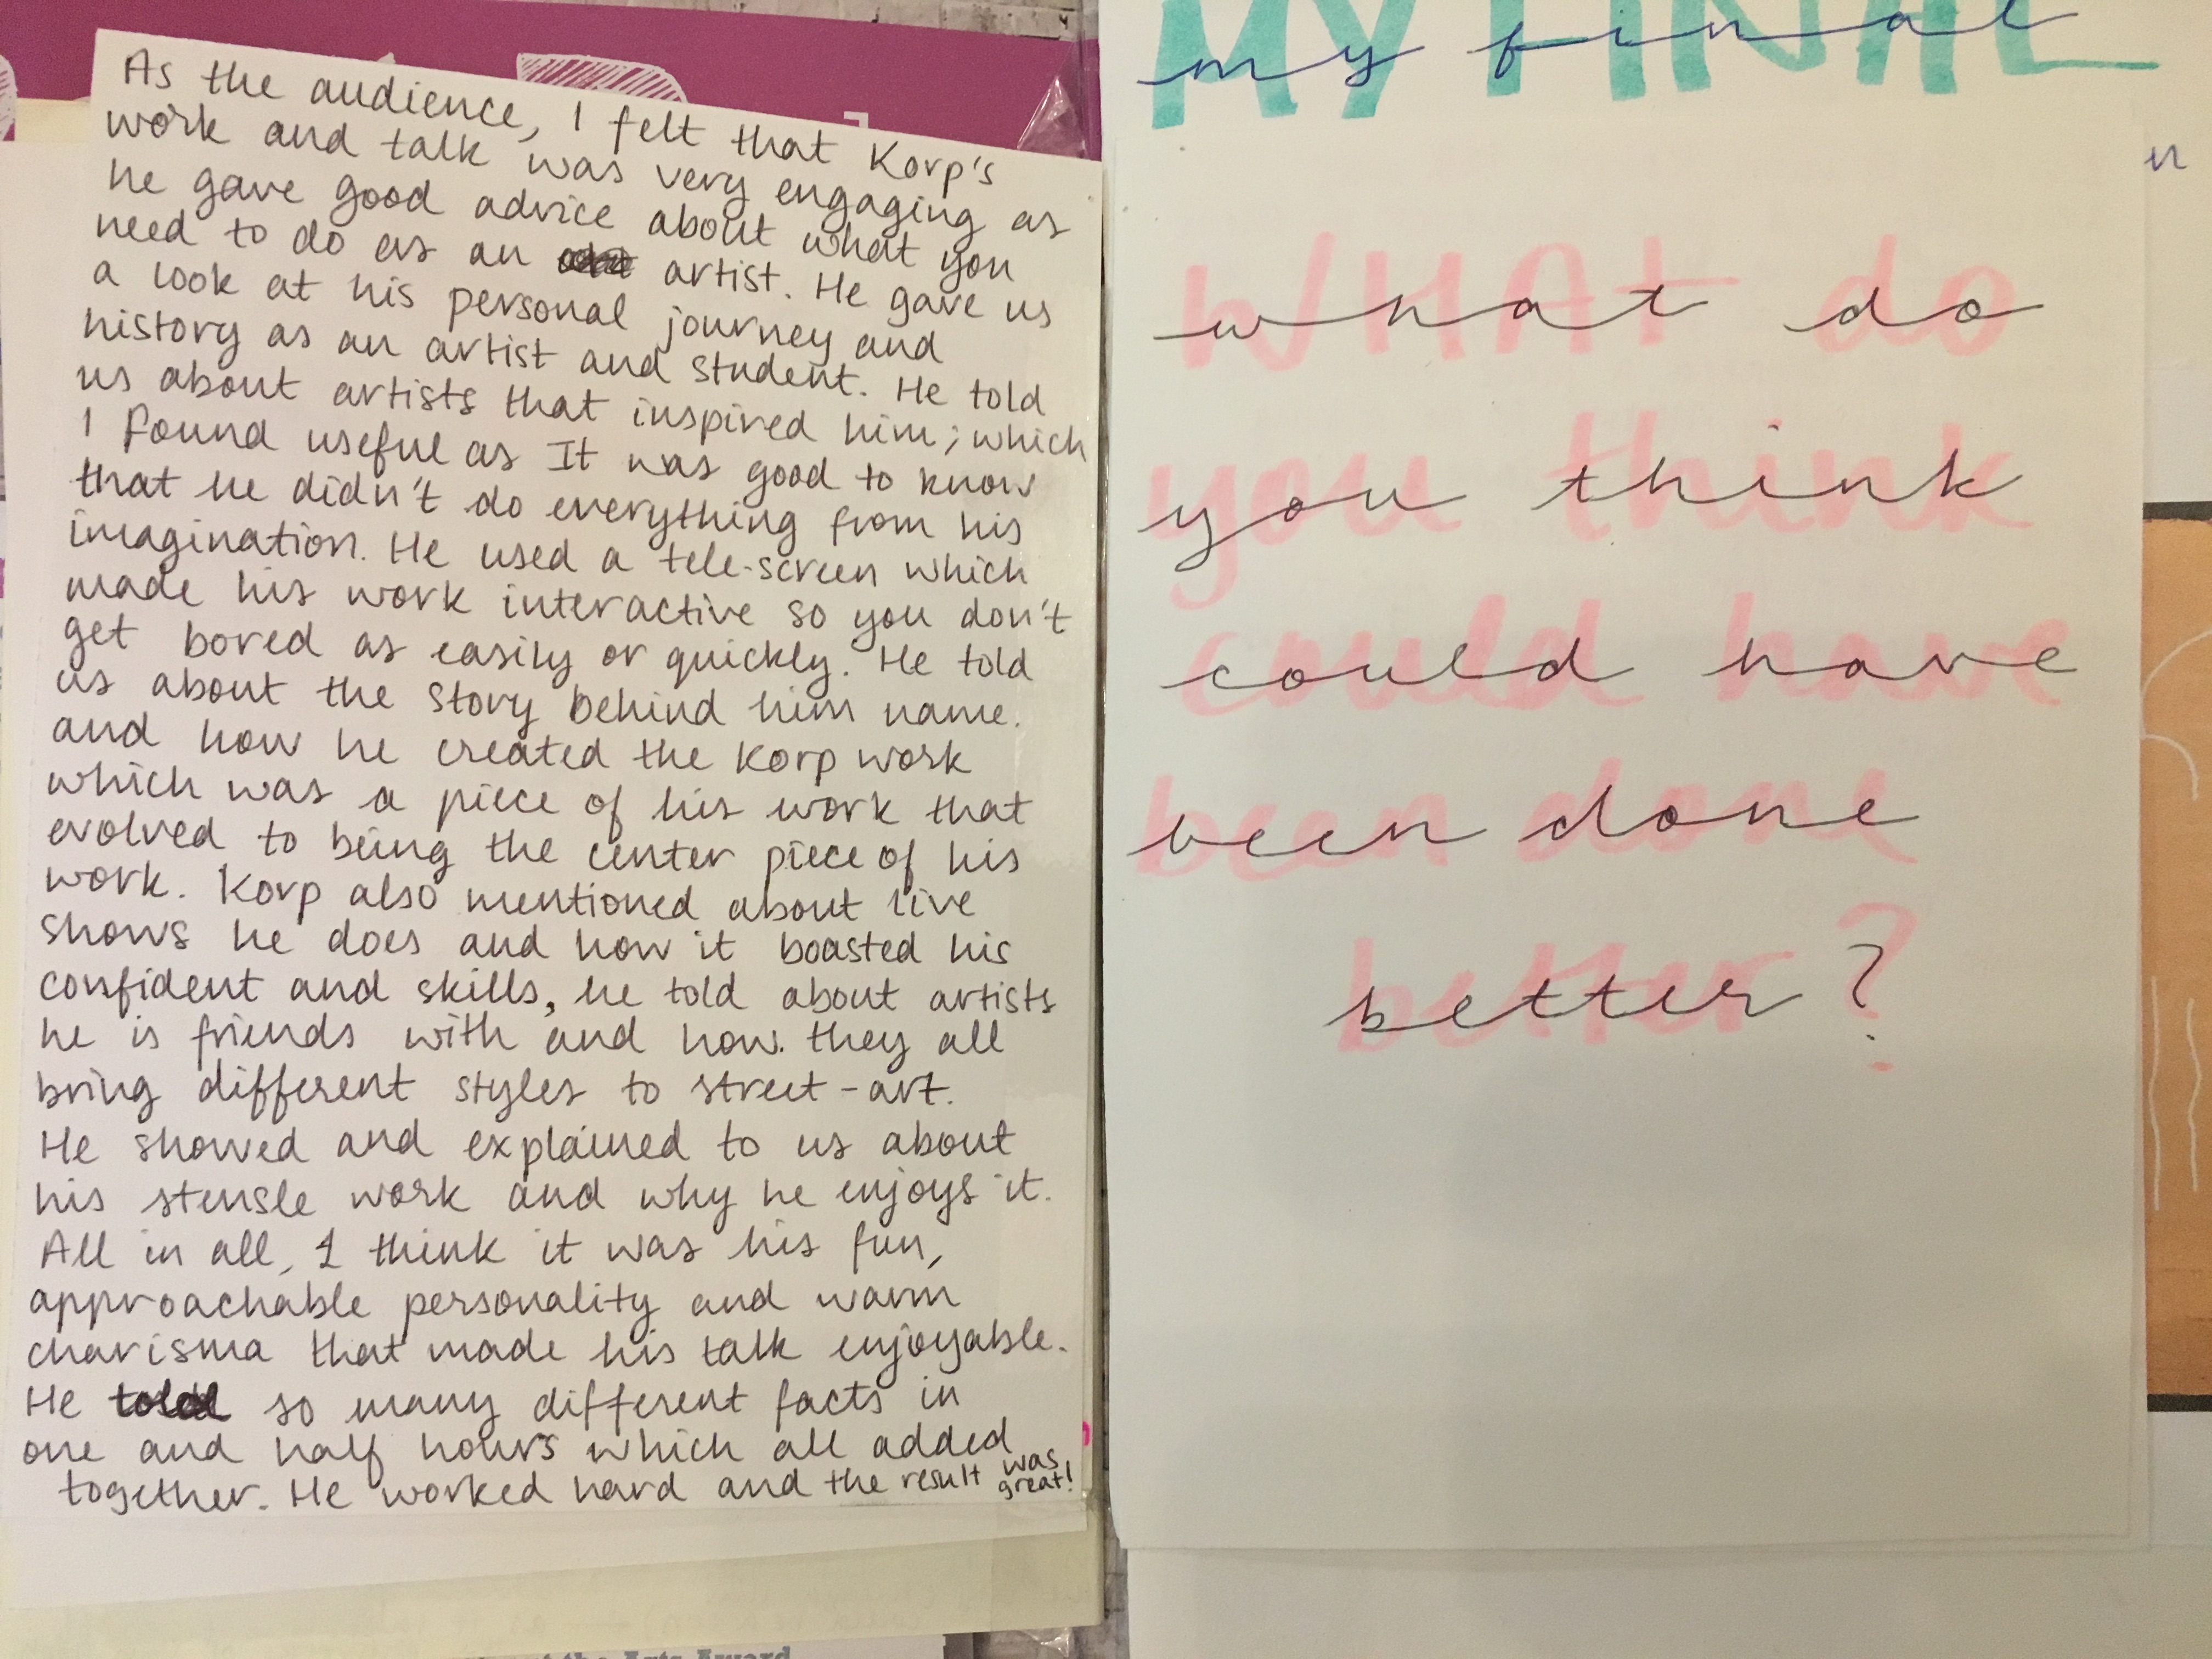 As the audience, I felt that Korp's
work and talk was very engaging as
he gave good advice about what you
need to do as an artist. He gave us
a look at his personal journey and
history as an artist and student. He told
us about artists that inspired him; which
I found useful as It was good to know
that he didn't do everything from his
imagination. He used a tele-screen which
made his work interactive so you don't
get bored as easily or quickly. He told
us about the story behind him name.
and how he created the Korp work
which was a piece of his work that
evolved to being the center piece of his
work. Korp also mentioned about live
shows he does and how it boasted his
confident and skills, he told about artists
he is friends with and how they all
bring different styles to street-art.
He showed and explained to us about
his stensle work and why he enjoys it.
All in all, I think it was his fun,
approachable personality and warm
charisma that made his talk enjoyable.
He told so many different facts in
one and half hours which all added
together. He worked hard and the result was
great!
MY FINAL
my final
WHAT do
what do
you think
you think
could have
could have
been done
been done
better?
better?
the Arts Award